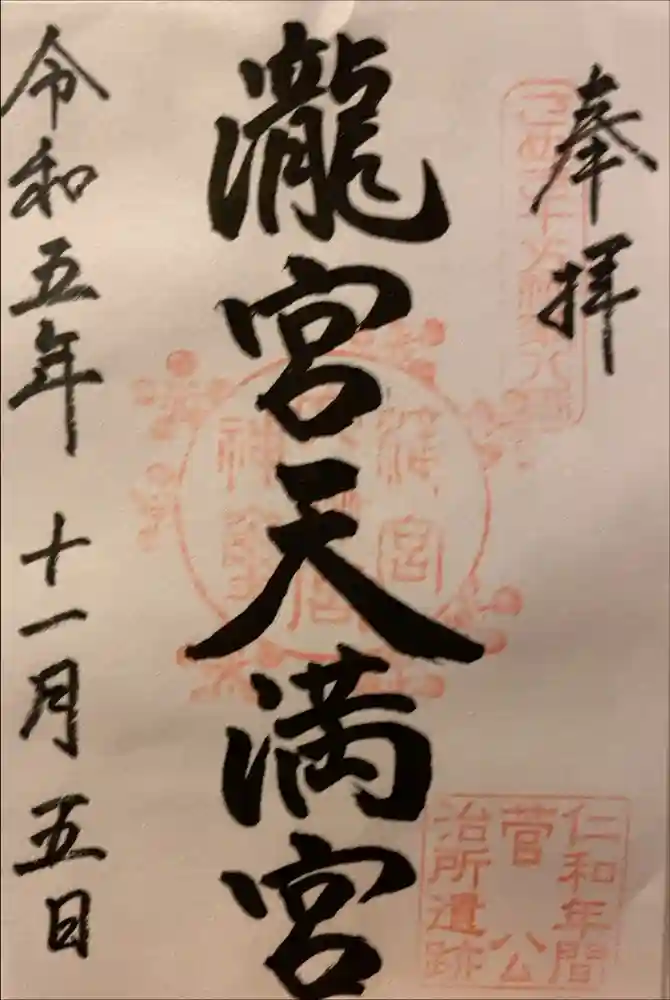 奉拝
瀧宮天満宮
仁和年間
菅公
治所遺跡
令和五年十一月五日